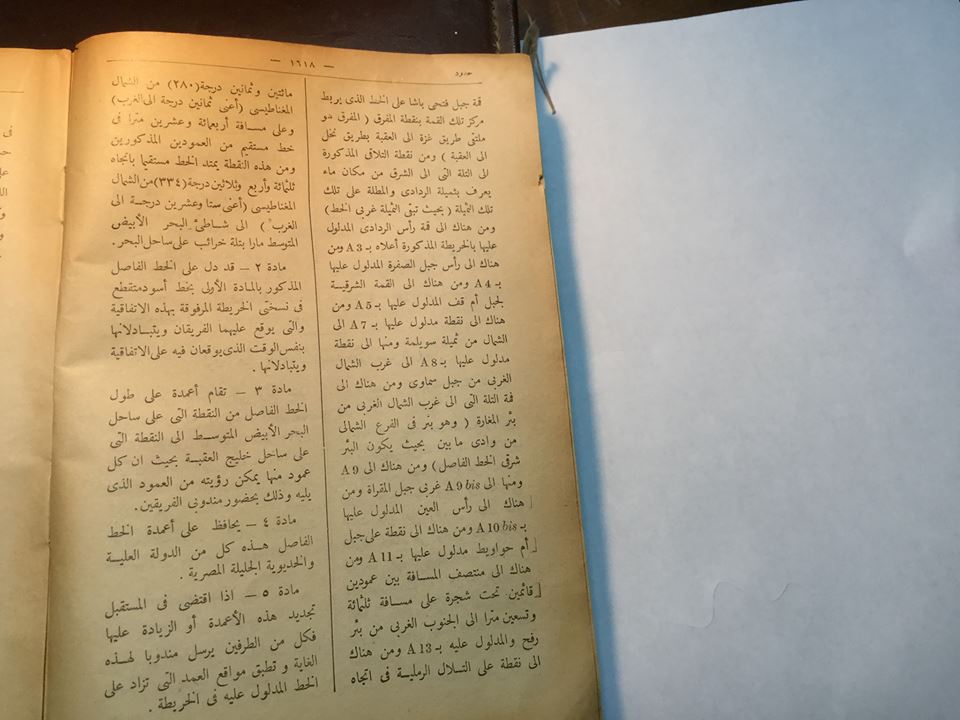 — ١٦١٨ —
حدود
قمة جبل فتحى باشا على الخط الذى يربط
مركز تلك القمة بنقطة المفرق ( المفرق هو
ملتقى طريق غزة الى العقبة بطريق نخل
الى العقبة ) ومن نقطة التلاق المذكورة
الى التلة التى الى الشرق من مكان ماء
يعرف بثميلة الردادى والمطلة على تلك
تلك الثميلة ( بحيث تبقى الثميلة غربى الخط)
ومن هناك الى قمة رأس الردادى المدلول
عليها بالخريطة المذكورة أعلاه بـ A 3 ومن
هناك الى رأس جبل الصفرة المدلول عليها
بـ A 4 ومن هناك الى القمة الشرقية
لجبل أم قف المدلول عليها بـ A 5 ومن
هناك الى نقطة مدلول عليها بـ A 7 الى
الشمال من ثميلة سويلمة ومنها الى نقطة
مدلول عليها بـ A 8 الى غرب الشمال
الغربى من جبل سماوى ومن هناك الى
قمة التلة التى الى غرب الشمال الغربى من
بئر المغارة ( وهو بئر فى الفرع الشمالى
من وادى مابين بحيث يكون البئر
شرقى الخط الفاصل) ومن هناك الى A 9
ومنها الى A 9 bis غربى جبل المقراة ومن
هناك الى رأس العين المدلول عليها
بـ A 10 bis ومن هناك الى نقطة على جبل
أم حواويط مدلول عليها بـ A 11 ومن
هناك الى منتصف المسافة بين عمودين
قائمين تحت شجرة على مسافة ثلثائة
وتسعين مترا الى الجنوب الغربى من بئر
رفح والمدلول عليه بـ A 13 ومن هناك
الى نقطة على التلال الرملية فى اتجاه
مائتين وثمانين درجة (٢٨٠) من الشمال
المغناطيسى (أعنى ثمانين درجة الى الغرب)
وعلى مسافة أربعمائة وعشرين مترا فى
خط مستقيم من العمودين المذكورين
ومن هذه النقطة يمتد الخط مستقيما باتجاه
ثلثمائة وأربع وثلاثين درجة (٣٣٤) من الشمال
المغناطيسى (أعنى ستا وعشرين درجة الى
الغرب ) الى شاطئ البحر الأبيض
المتوسط مارا بتلة خرائب على ساحل البحر.
مادة ٢ — قد دل على الخط الفاصل
المذكور بالمادة الأولى بخط أسود متقطع
فى نسختى الخريطة المرفوقة بهذه الاتفاقية
والتى يوقع عليهما الفريقان ويتبادلانها
بنفس الوقت الذى يوقعان فيه على الاتفاقية
ويتبادلانها .
مادة ٣ — تقام أعمدة على طول
الخط الفاصل من النقطة التى على ساحل
البحر الأبيض المتوسط الى النقطة التى
على ساحل خليج العقبة بحيث ان كل
عمود منها يمكن رؤيته من العمود الذى
يليه وذلك بحضور مندوبى الفريقين.
مادة ٤ — يحافظ على أعمدة الخط
الفاصل هذه كل من الدولة العلية
والخديوية الجليلة المصرية .
مادة ٥ — اذا اقتضى فى المستقبل
تجديد هذه الأعمدة أو الزيادة عليها
فكل من الطرفين يرسل مندوبا لهذه
الغاية وتطبق مواقع العمد التى تزاد على
الخط المدلول عليه فى الخريطة .